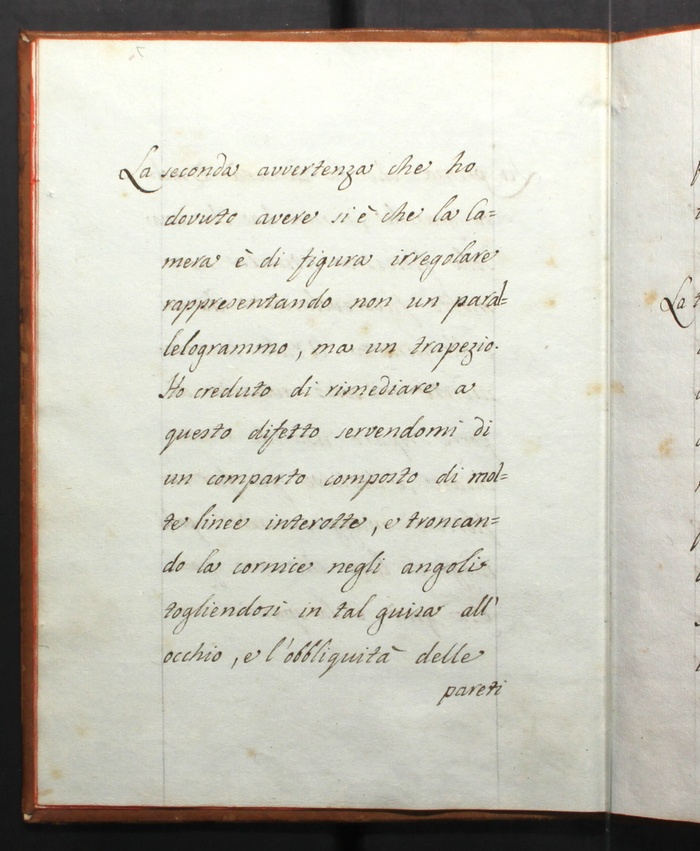 La seconda avvertenza che ho
dovuto avere si è che la Ca=
mera è di figura irregolare
rappresentando non un paral=
lelogrammo, ma un trapezio.
Ho creduto di rimediare a
questo difetto servendomi di
un comparto composto di mol=
te linee interotte, e troncan=
do la cornice negli angoli
togliendosi in tal guisa all'
occhio, e l'obbliquità delle
pareti
La